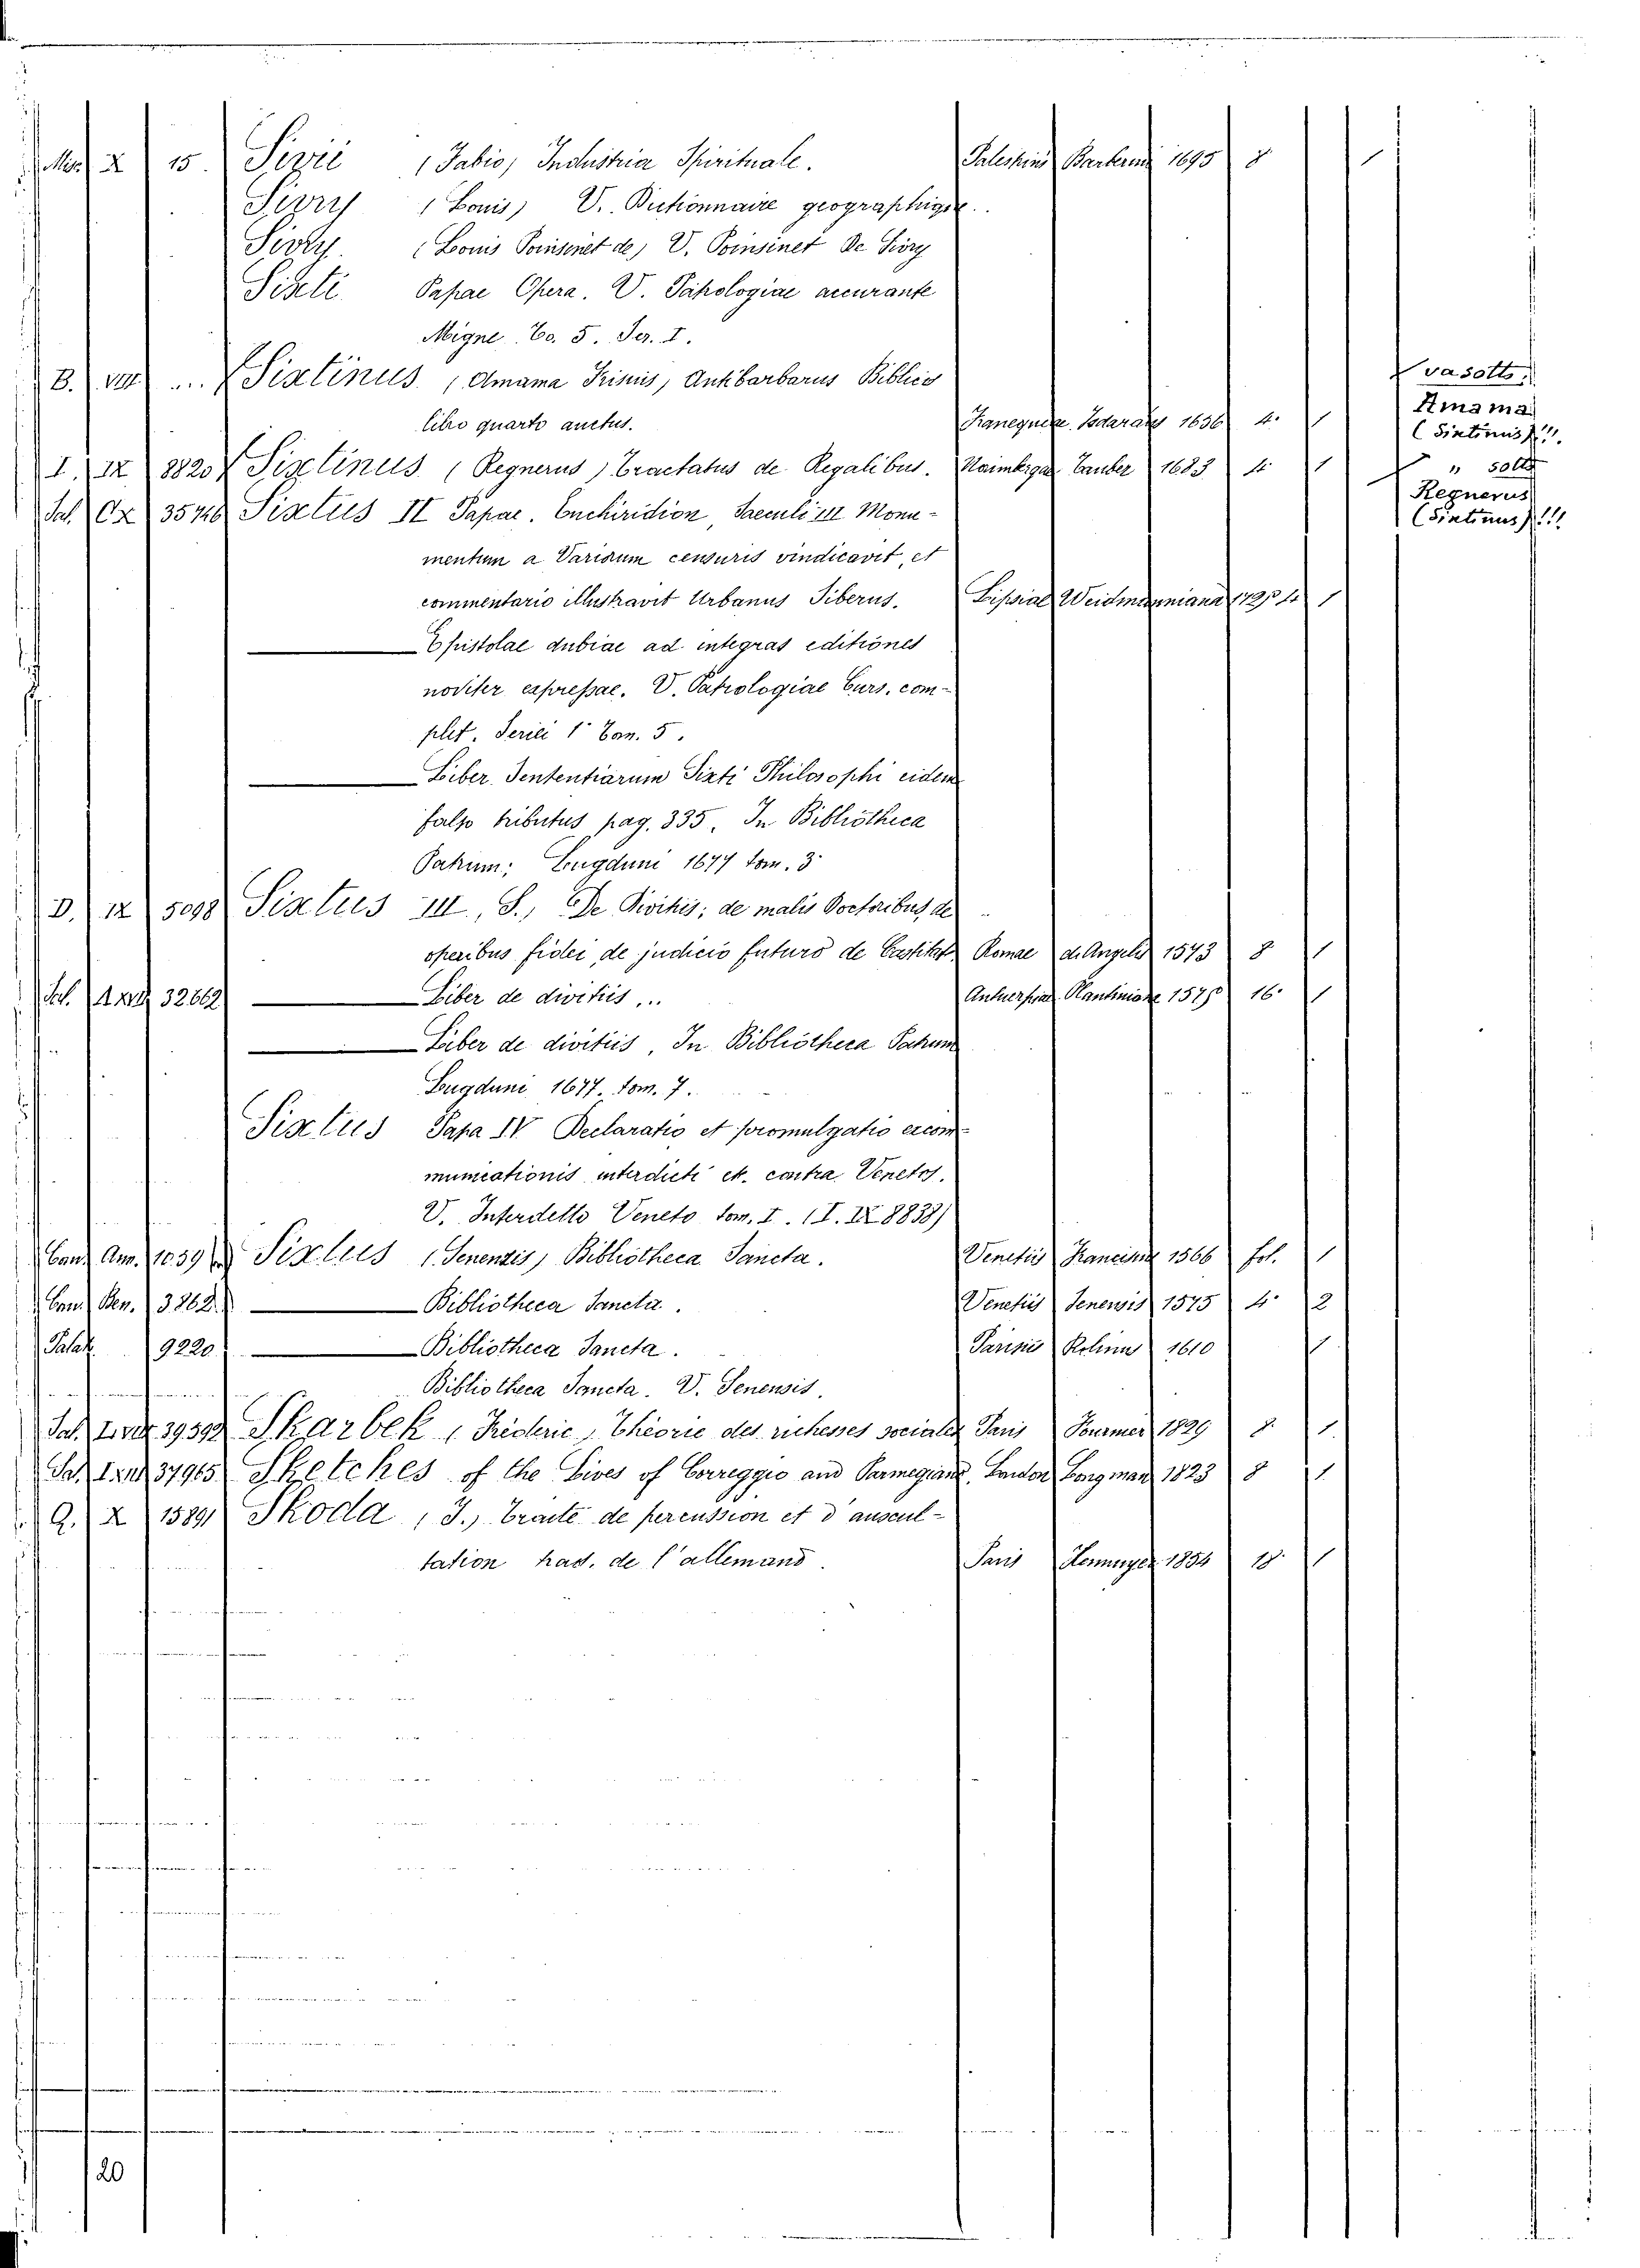 X 15. Sivii (Fabio) Industria Spirituale. Barberini 1695 8 1
Sivry (Louis) V. Dictionnaire geographique.
Sivry (Louis Poinsinet de) V. Poinsinet De Sivry
Sixti Papae Opera. V. Patrologiae accurante
Migne To. 5. Ser. I.
B. VIII ... Sixtinus (Amama Frisius) Antibarbarus Biblicus
libro quarto auctus. 1656 4. 1
I. IX 8820 Sixtinus (Regnerus) Tractatus de Regalibus. Tauber 1683 4. 1
Sal. 35746 Sixtus II Papae. Enchiridion, Saeculi III Monu-
mentum a Variorum censuris vindicavit, et
commentario illustravit Urbanus Siberus. Lipsiae Weidmanniana 4 1
Epistolae dubiae ad integras editiones
noviter expressae. V. Patrologiae Curs. com-
plet. Seriei 1ª Tom. 5.
Liber Sententiarum Sixti Philosophi eidem
falso tributus pag. 335. In Bibliotheca
Patrum; Lugduni 1677 tom. 3
D. IX 5098 Sixtus III, S., De Divitiis; de malis Doctoribus, de
operibus fidei, de judicio futuro de Castitate Romae de Angelis 1573 8 1
Sal. 32662 Liber de divitiis... Antuerpiae Plantiniana 1575 16. 1
Liber de divitiis, In Bibliotheca Patrum
Lugduni 1677, tom. 7.
Sixtus Papa IV Declaratio et promulgatio excom-
municationis interdicti et. contra Venetos.
V. Interdetto Veneto tom. I. (I. IX 8838)
Cam. Am. 1039 Sixtus (Senensis) Bibliotheca Sancta. Venetiis 1566 fol. 1
Cam. Ben. 3862. Bibliotheca Sancta. Venetiis Senensis 1575 4. 2
Palat. 9220 Bibliotheca Sancta. Parisiis 1610 1
Bibliotheca Sancta. V. Senensis.
Sal. 39592 Skarbek (Fréderic) Théorie des richesses sociales Paris 1829 8. 1.
Sal. 37965 Sketches of the Lives of Correggio and Parmegiano, London Longman 1823 8 1.
Q. X 15891 Skoda (J.) Traité de percussion et d'auscul-
tation trad. de l'allemand. Paris Hennuyer 1854 18. 1
20
va sotto
Amama
(Sixtinus)!!!
" sotto
Regnerus
(Sixtinus)!!!